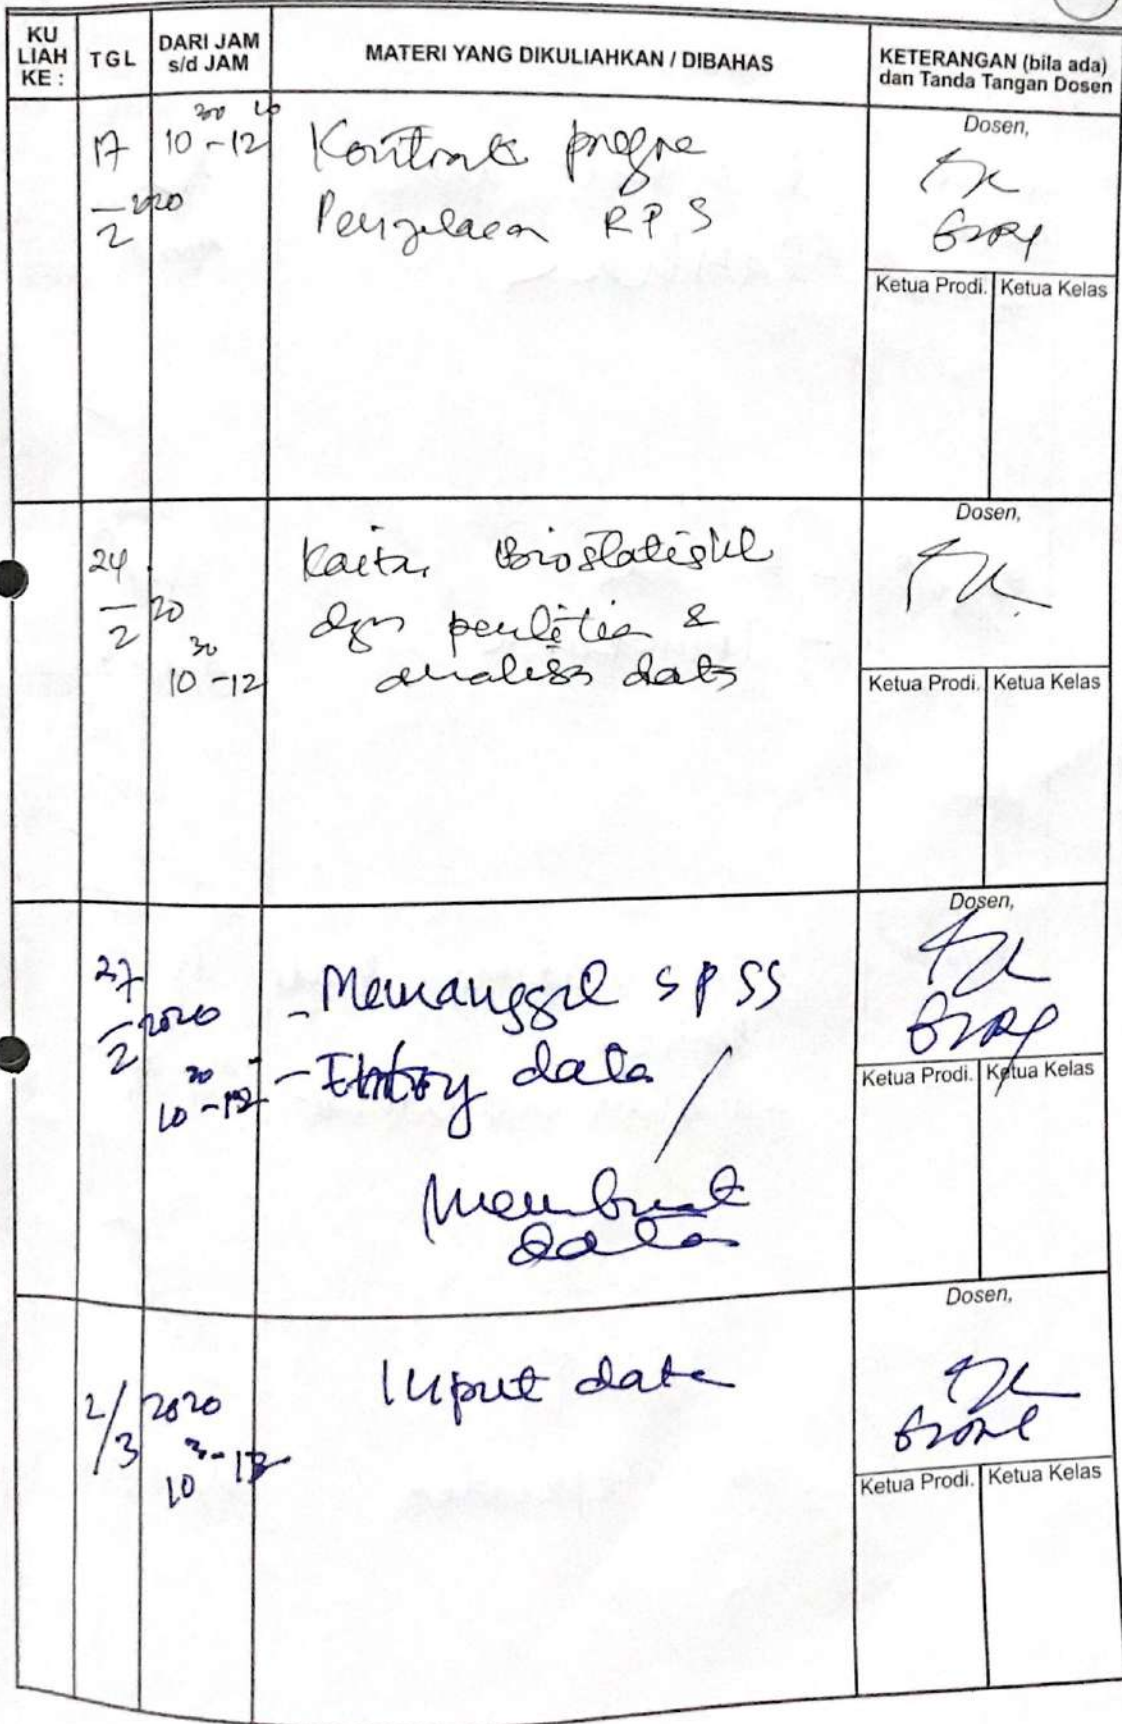 KU LIAH KE :
TGL
DARI JAM s/d JAM
MATERI YANG DIKULIAHKAN / DIBAHAS
KETERANGAN (bila ada) dan Tanda Tangan Dosen
17/2 2020
10 30 - 12
Kontrak
RPS
Dosen,
Ketua Prodi. Ketua Kelas
24/2 20
10 30 - 12
Biostatistik
dgn &
analisis data
Dosen,
Ketua Prodi. Ketua Kelas
27/2 2020
10 - 12
- Memanggil SPSS
- Entry data /
Membuat
data
Dosen,
Ketua Prodi. Ketua Kelas
2/3 2020
10
Input data
Dosen,
Ketua Prodi. Ketua Kelas